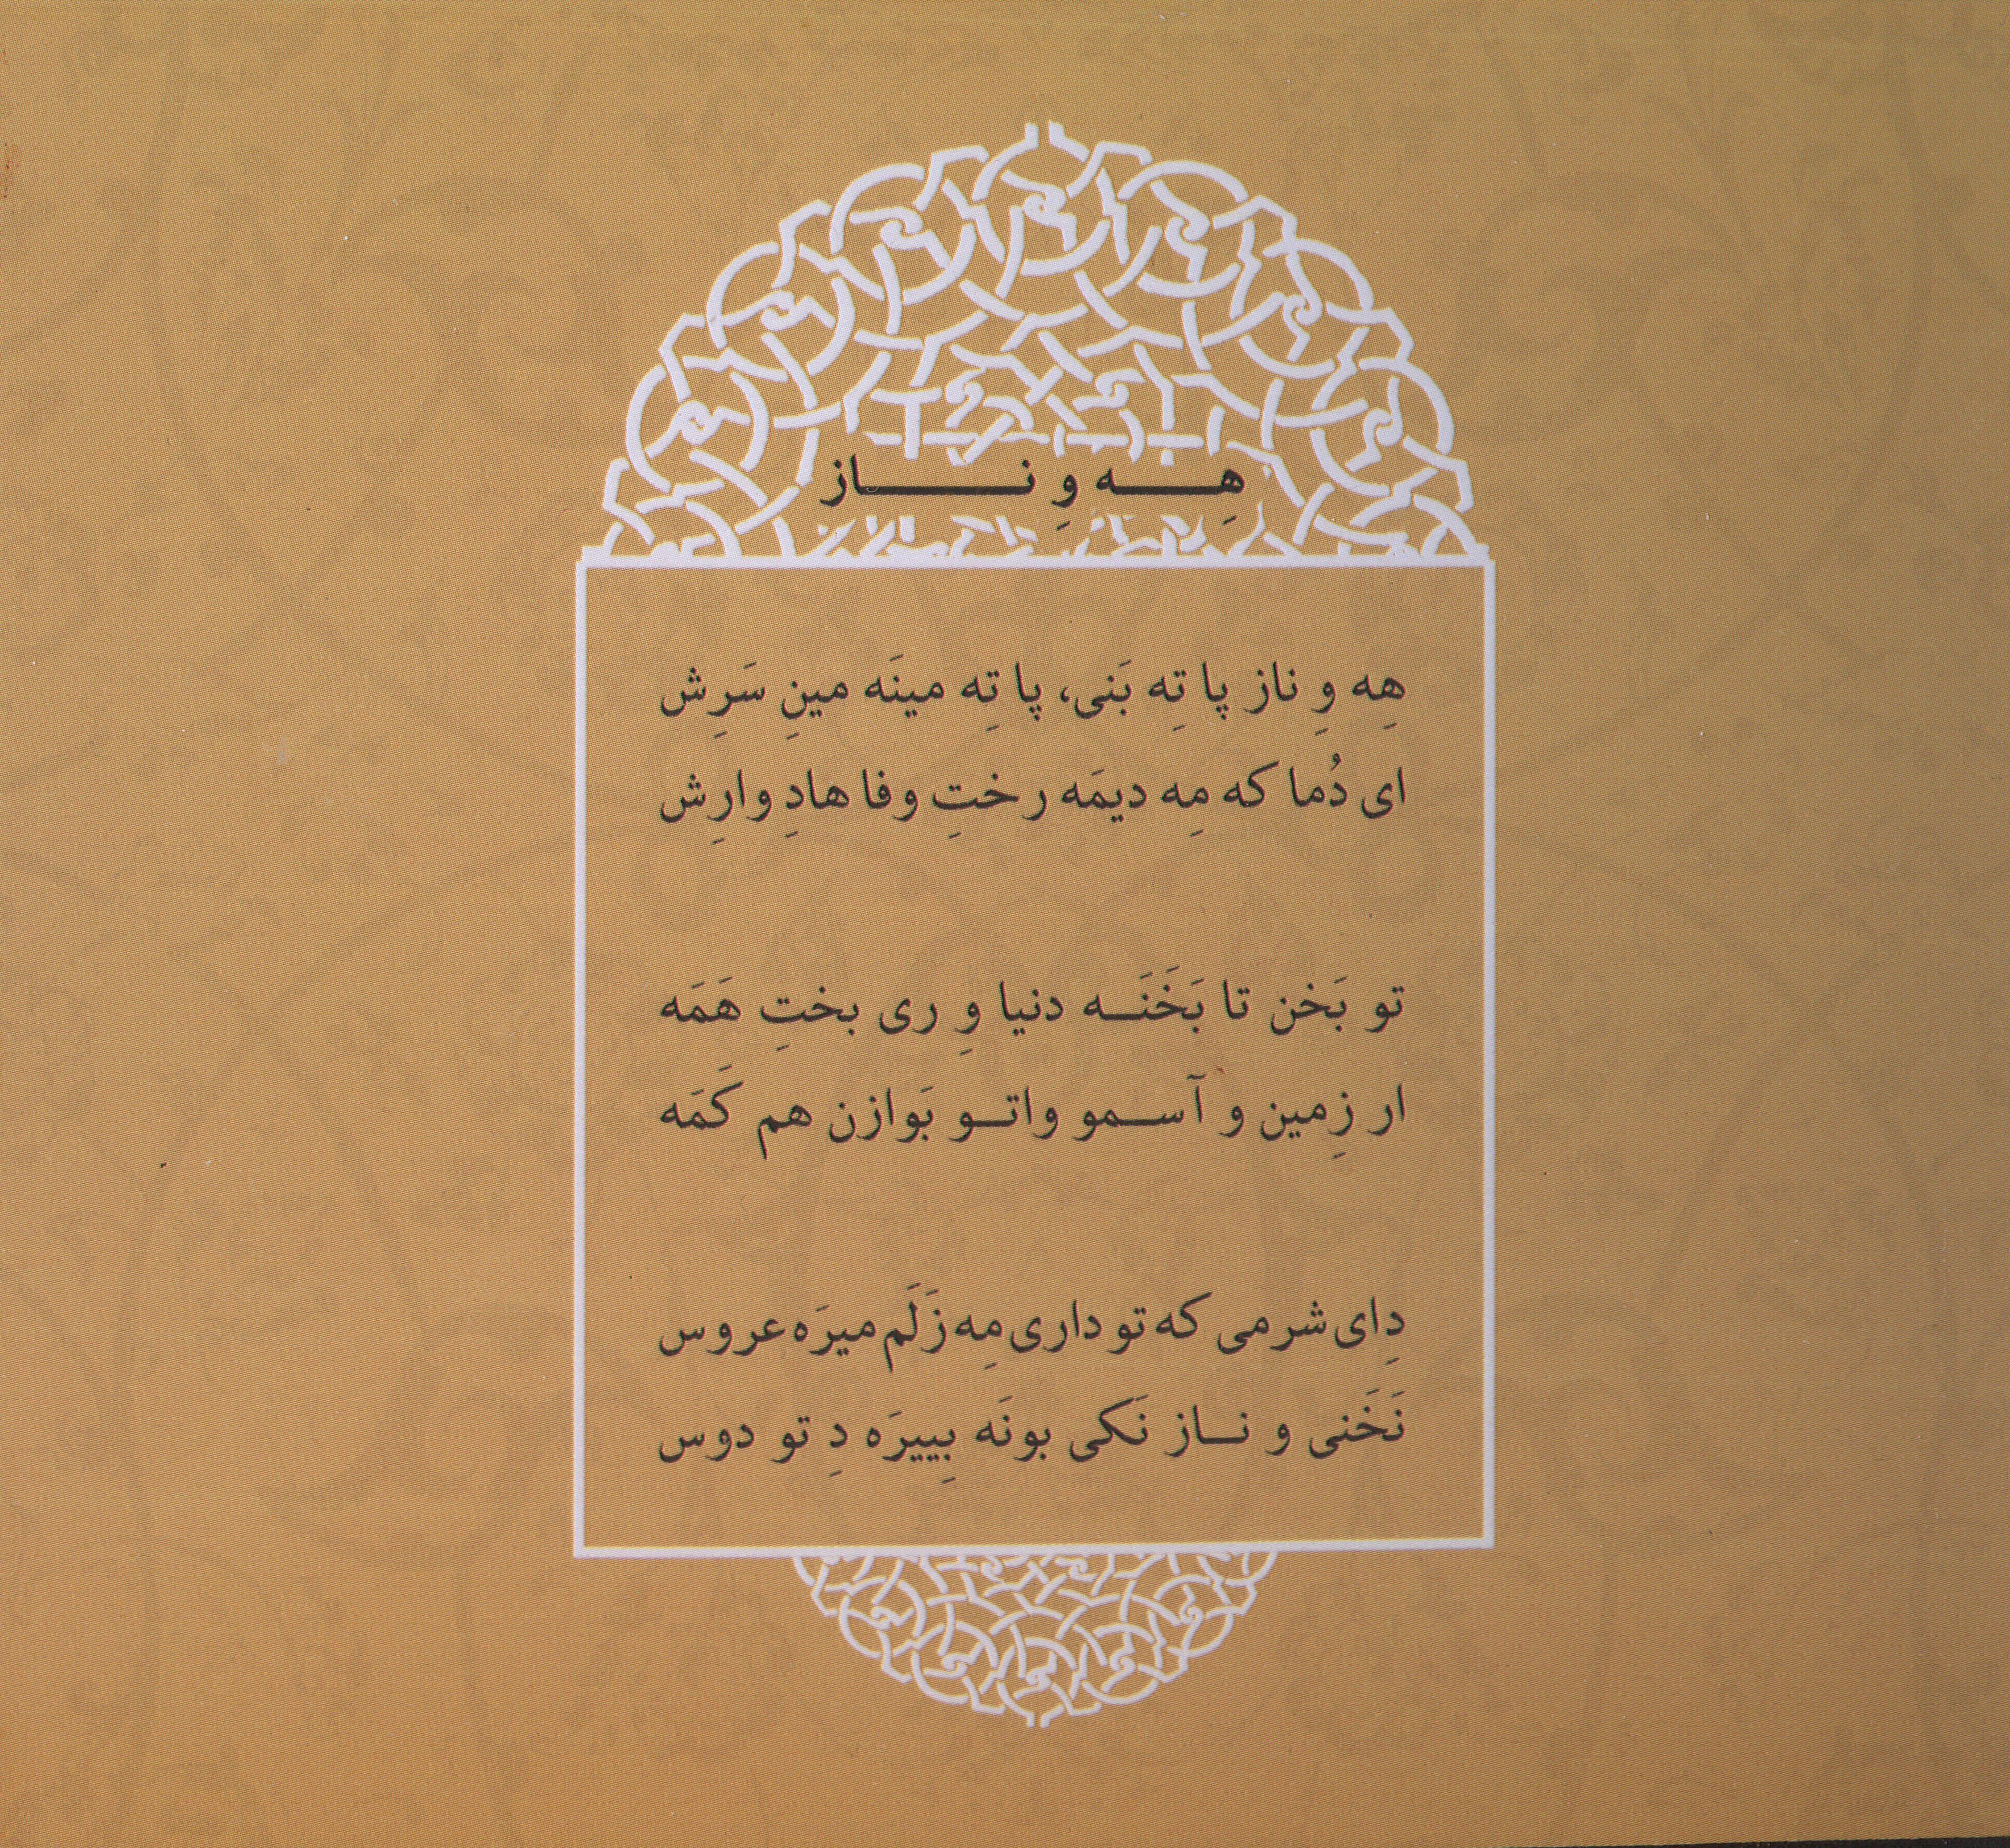 هِه وِ ناز
هِه وِ ناز پا تِه بَنی، پا تِه مینَه مینِ سَرِش
ای دُما که مِه دیمَه رختِ وفا هادِ وارِش
تو بَخن تا بَخَنَه دنیا وِ ری بختِ هَمَه
ار زِمین و آسمو واتو بَوازن هم کَمَه
دِای شرمی که تو داری مِه زَلَم میرَه عروس
نَخَنی و ناز نَکی بونَه بِییرَه دِ تو دوس